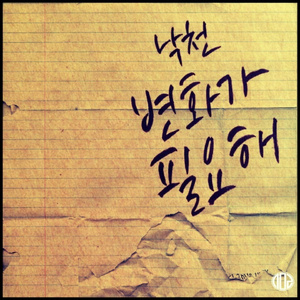 낙천
변화가
필요해